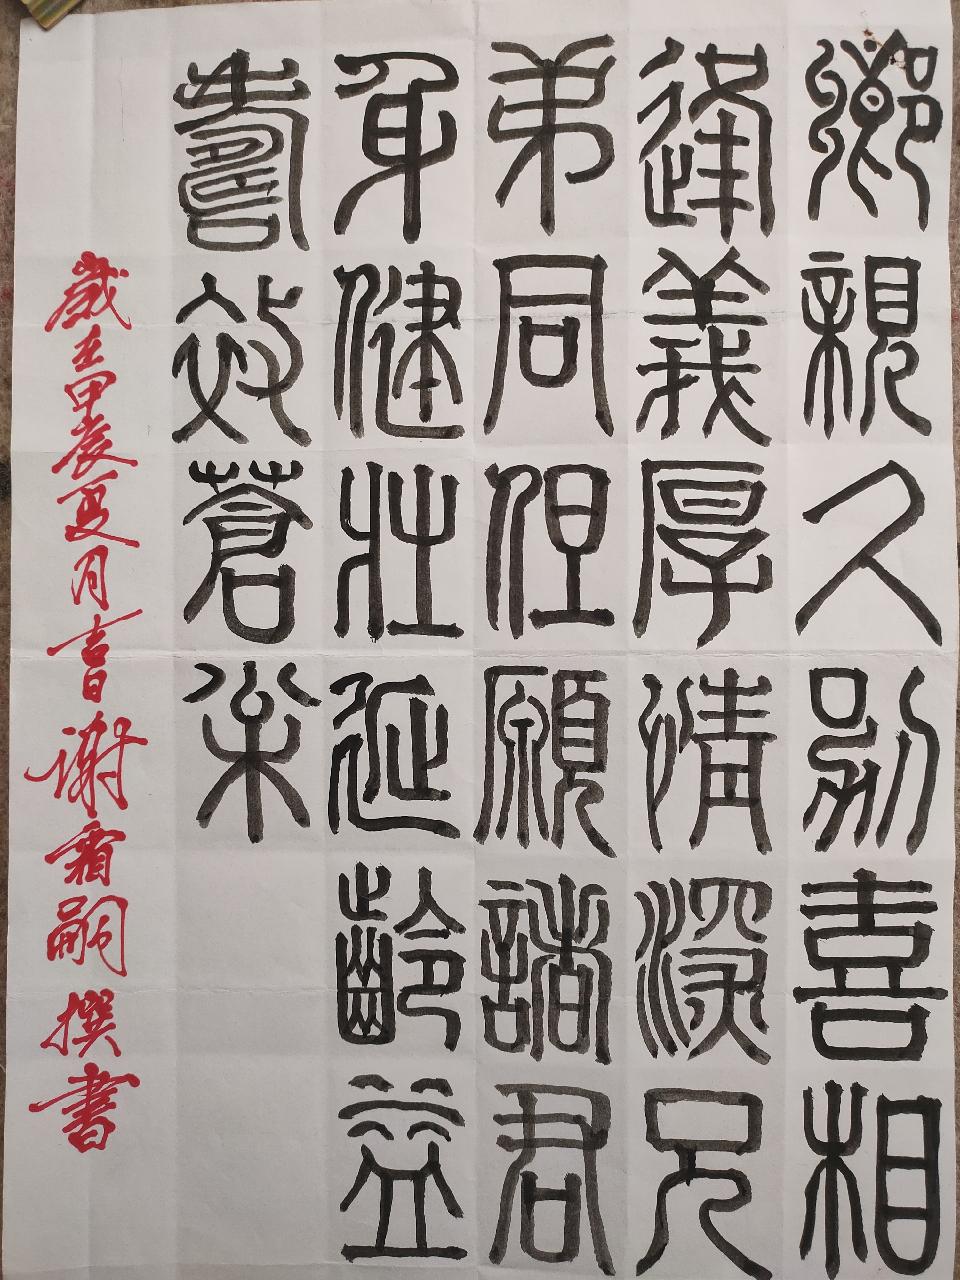 鄉親久別喜相
逢義厚情深兄
弟同但願諸君
身健壯延齡益
壽效蒼松
歲在甲辰夏月吉日谢霜嗣撰書